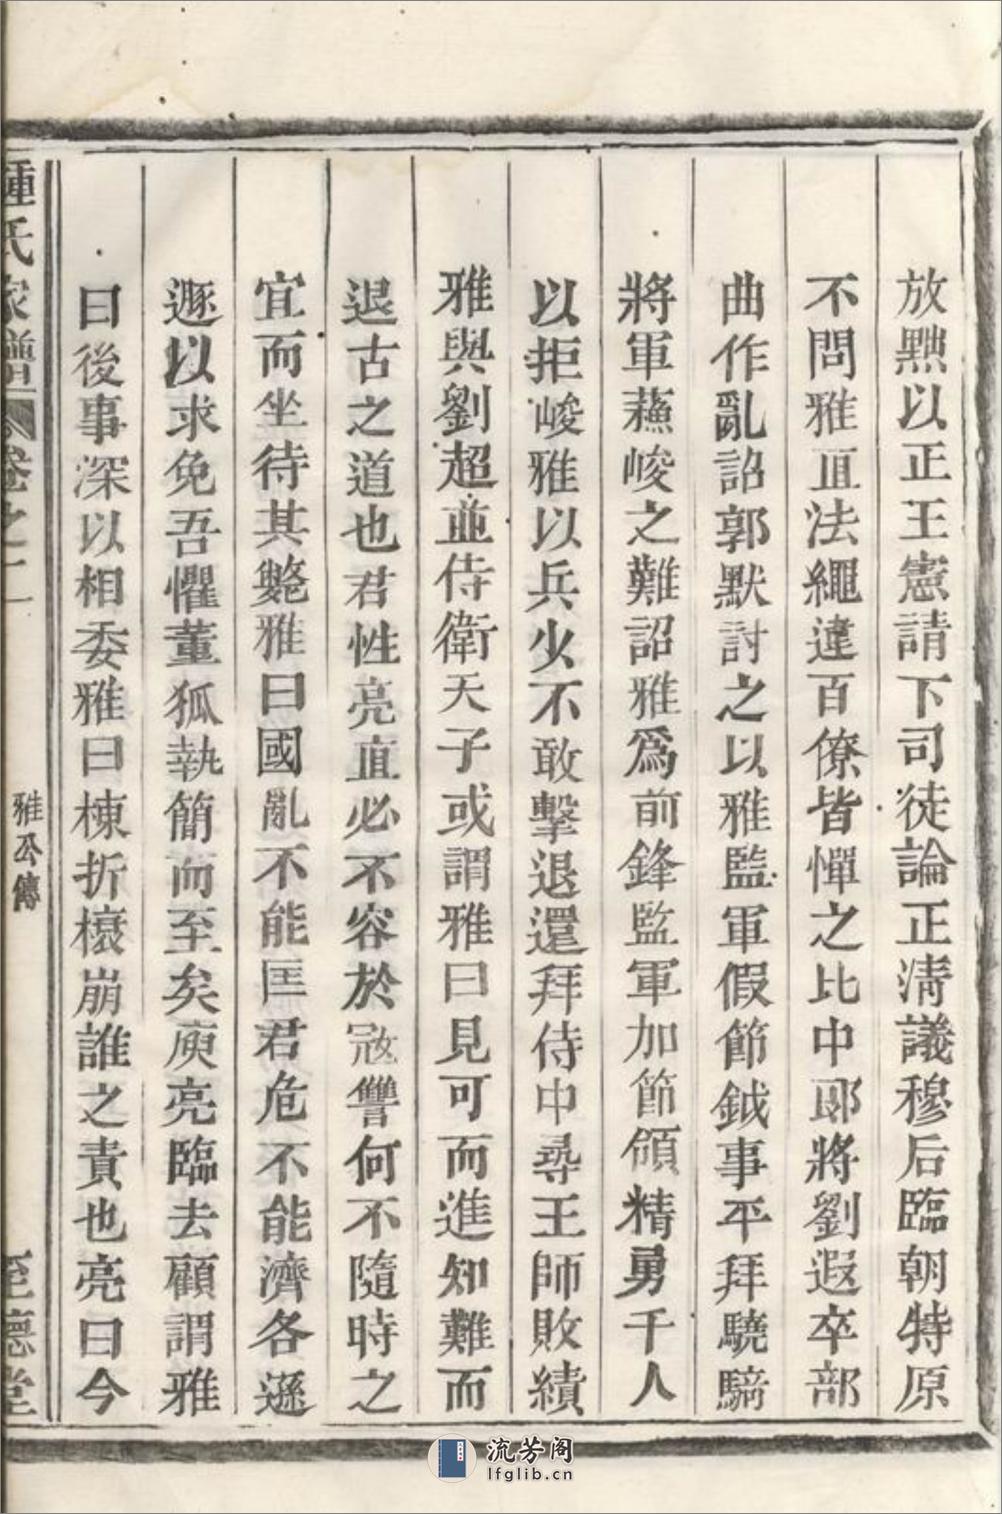 放黜以正王憲請下司徒論正清議穆后臨朝特原
不問雅直法繩違百僚皆憚之比中郞將劉遐卒部
曲作亂詔郭默討之以雅監軍假節鉞事平拜驍騎
將軍蘓峻之難詔雅爲前鋒監軍加節領精勇千人
以拒峻雅以兵少不敢擊退還拜侍中尋王師敗績
雅與劉超並侍衛天子或謂雅曰見可而進知難而
退古之道也君性亮直必不容於冦讐何不隨時之
宜而坐待其斃雅曰國亂不能匡君危不能濟各遜
遯以求免吾懼董狐執簡而至矣庾亮臨去顧謂雅
曰後事深以相委雅曰棟折榱崩誰之責也亮曰今
鍾氏家譜 卷之二 雅公傳 至德堂
流芳阁
lfglib.cn